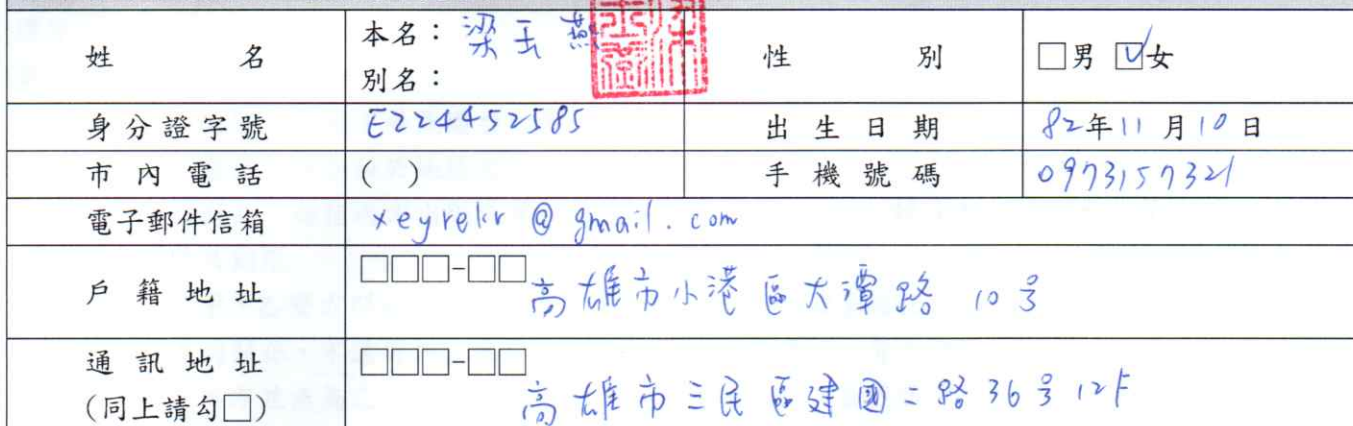 姓名 本名：梁玉燕 性別 □男 ☑女
別名：
身分證字號 E224452585 出生日期 82年11月10日
市內電話 ( ) 手機號碼 0973157321
電子郵件信箱 xeyrekr@gmail.com
戶籍地址 □□□-□□ 高雄市小港區大潭路 10号
通訊地址 □□□-□□ 高雄市三民區建國二路36号12F
(同上請勾□)